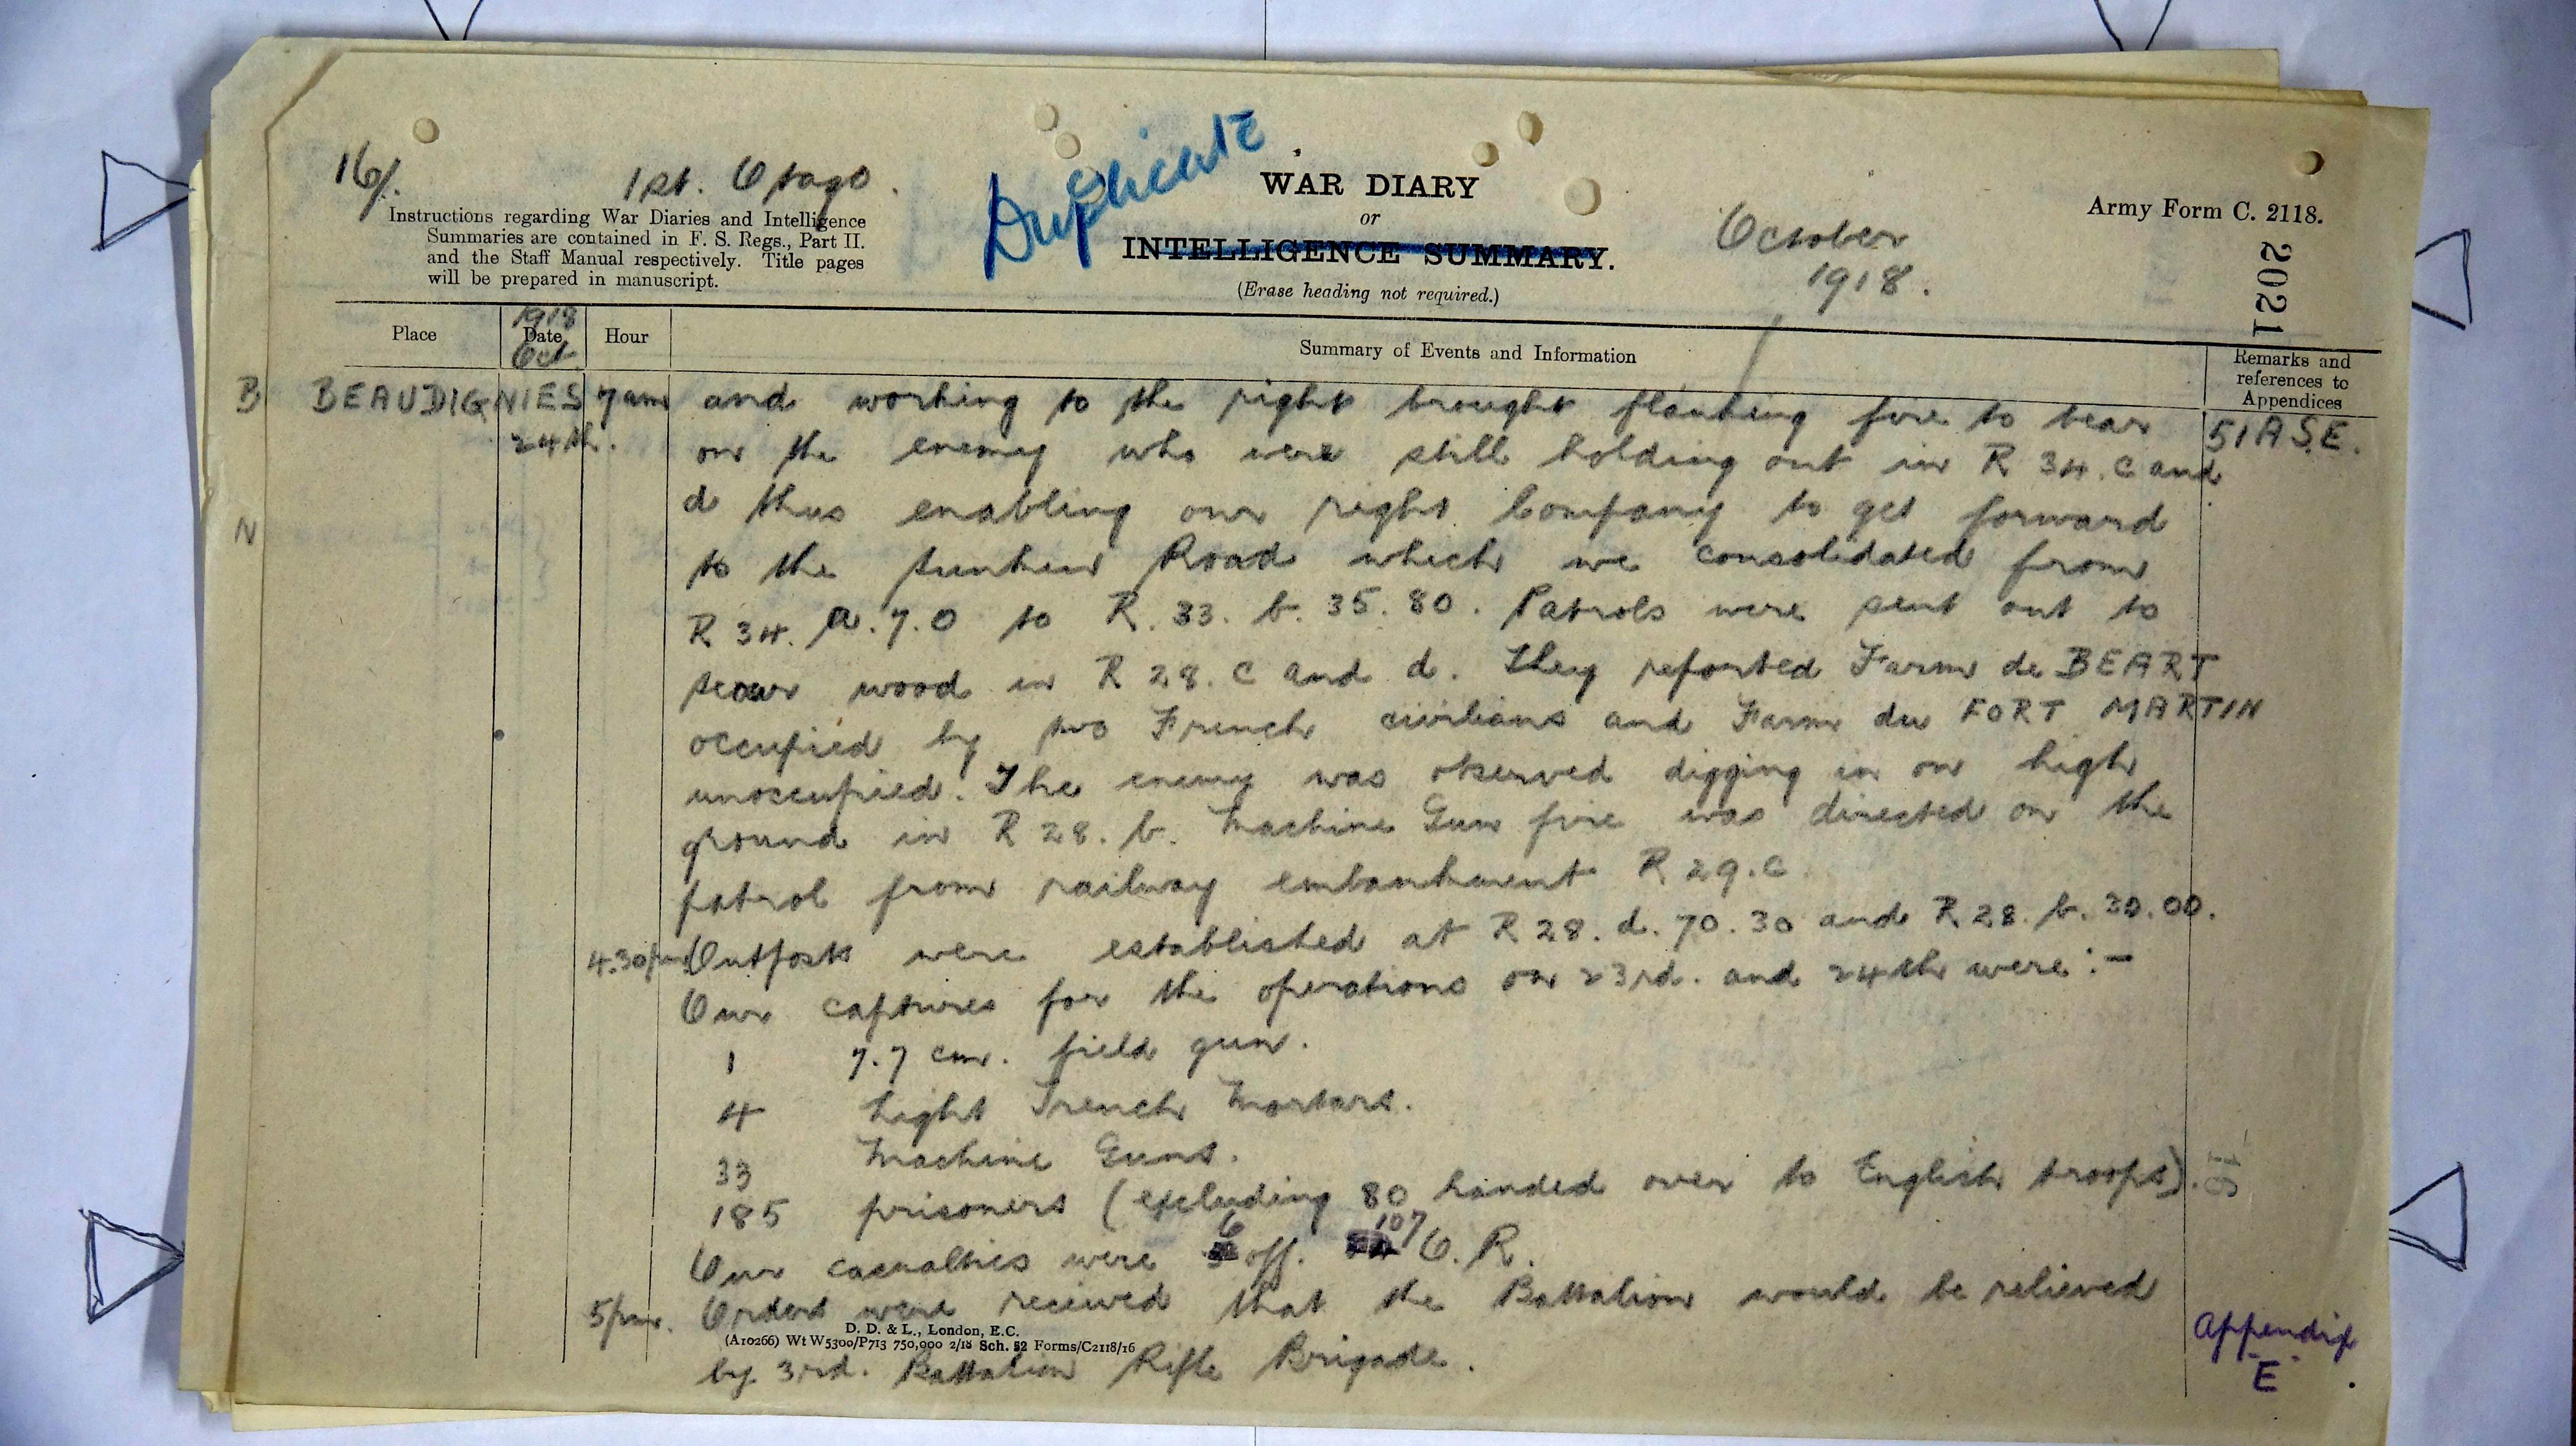 16/.
1st. Otago.
Duplicate
WAR DIARY
or
INTELLIGENCE SUMMARY.
(Erase heading not required.)
October
1918.
Army Form C. 2118.
2021
Instructions regarding War Diaries and Intelligence
Summaries are contained in F. S. Regs., Part II.
and the Staff Manual respectively. Title pages
will be prepared in manuscript.
Place
1918
Date
Oct
Hour
Summary of Events and Information
Remarks and
references to
Appendices
B
N
BEAUDIGNIES 7am and working to the right brought flanking fire to bear 51A S.E.
24th. on the enemy who were still holding out in R 34. c and
d thus enabling our right Company to get forward
to the sunken Road which we consolidated from
R 34. a. 7.0 to R. 33. b. 35. 80. Patrols were sent out to
scour wood in R 28. c and d. They reported Farm de BEART
occupied by two French civilians and Farm du FORT MARTIN
unoccupied. The enemy was observed digging in on high
ground in R 28. b. Machine Gun fire was directed on the
patrol from railway embankment R 29. c
4.30pm Outposts were established at R 28. d. 70. 30 and R 28. b. 30. 00.
Our captures for the operations on 23rd. and 24th were :-
1 7.7 cm. field gun.
4 Light Trench Mortars.
33 Machine Guns.
185 prisoners (excluding 80 handed over to English troops).
Our casualties were 6 off. 107 O.R.
5pm. Orders were received that the Battalion would be relieved
by 3rd. Battalion Rifle Brigade.
D. D. & L., London, E.C.
(A10266) Wt W5300/P713 750,000 2/18 Sch. 52 Forms/C2118/16
16
Appendix
E.